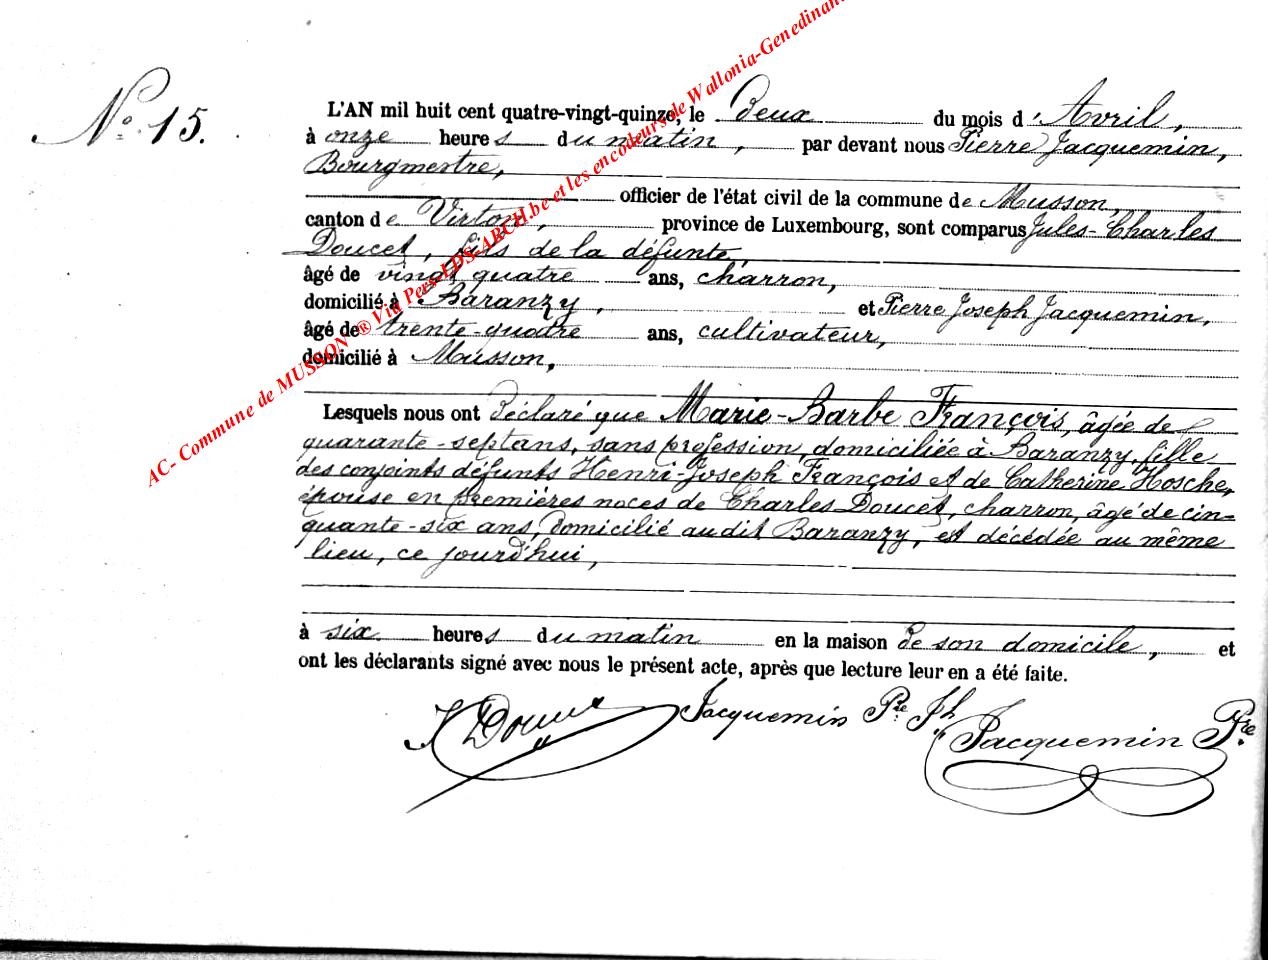 N° 15.
L'AN mil huit cent quatre-vingt-quinze, le Deux du mois d'Avril,
à onze heures du matin, par devant nous Pierre Jacquemin,
Bourgmestre,
officier de l'état civil de la commune de Musson,
canton de Virton, province de Luxembourg, sont comparus Jules-Charles
Doucet, fils de la défunte,
âgé de vingt quatre ans, charron,
domicilié à Baranzy, et Pierre Joseph Jacquemin,
âgé de trente-quatre ans, cultivateur,
domicilié à Musson,
Lesquels nous ont Déclaré que Marie-Barbe François, âgée de
quarante-sept ans, sans profession, domiciliée à Baranzy, fille
des conjoints défunts Henri-Joseph François et de Catherine Hosche,
épouse en premières noces de Charles Doucet, charron, âgé de cin-
quante-six ans, domicilié audit Baranzy, est décédée au même
lieu, ce jourd'hui,
à six heures du matin en la maison de son domicile, et
ont les déclarants signé avec nous le présent acte, après que lecture leur en a été faite.
J Doucet Jacquemin Pre Jh Jacquemin Pre
AC- Commune de MUSSON ® Via Pers-LDS-ARCH.be et les encodeurs de Wallonia-Genedinant